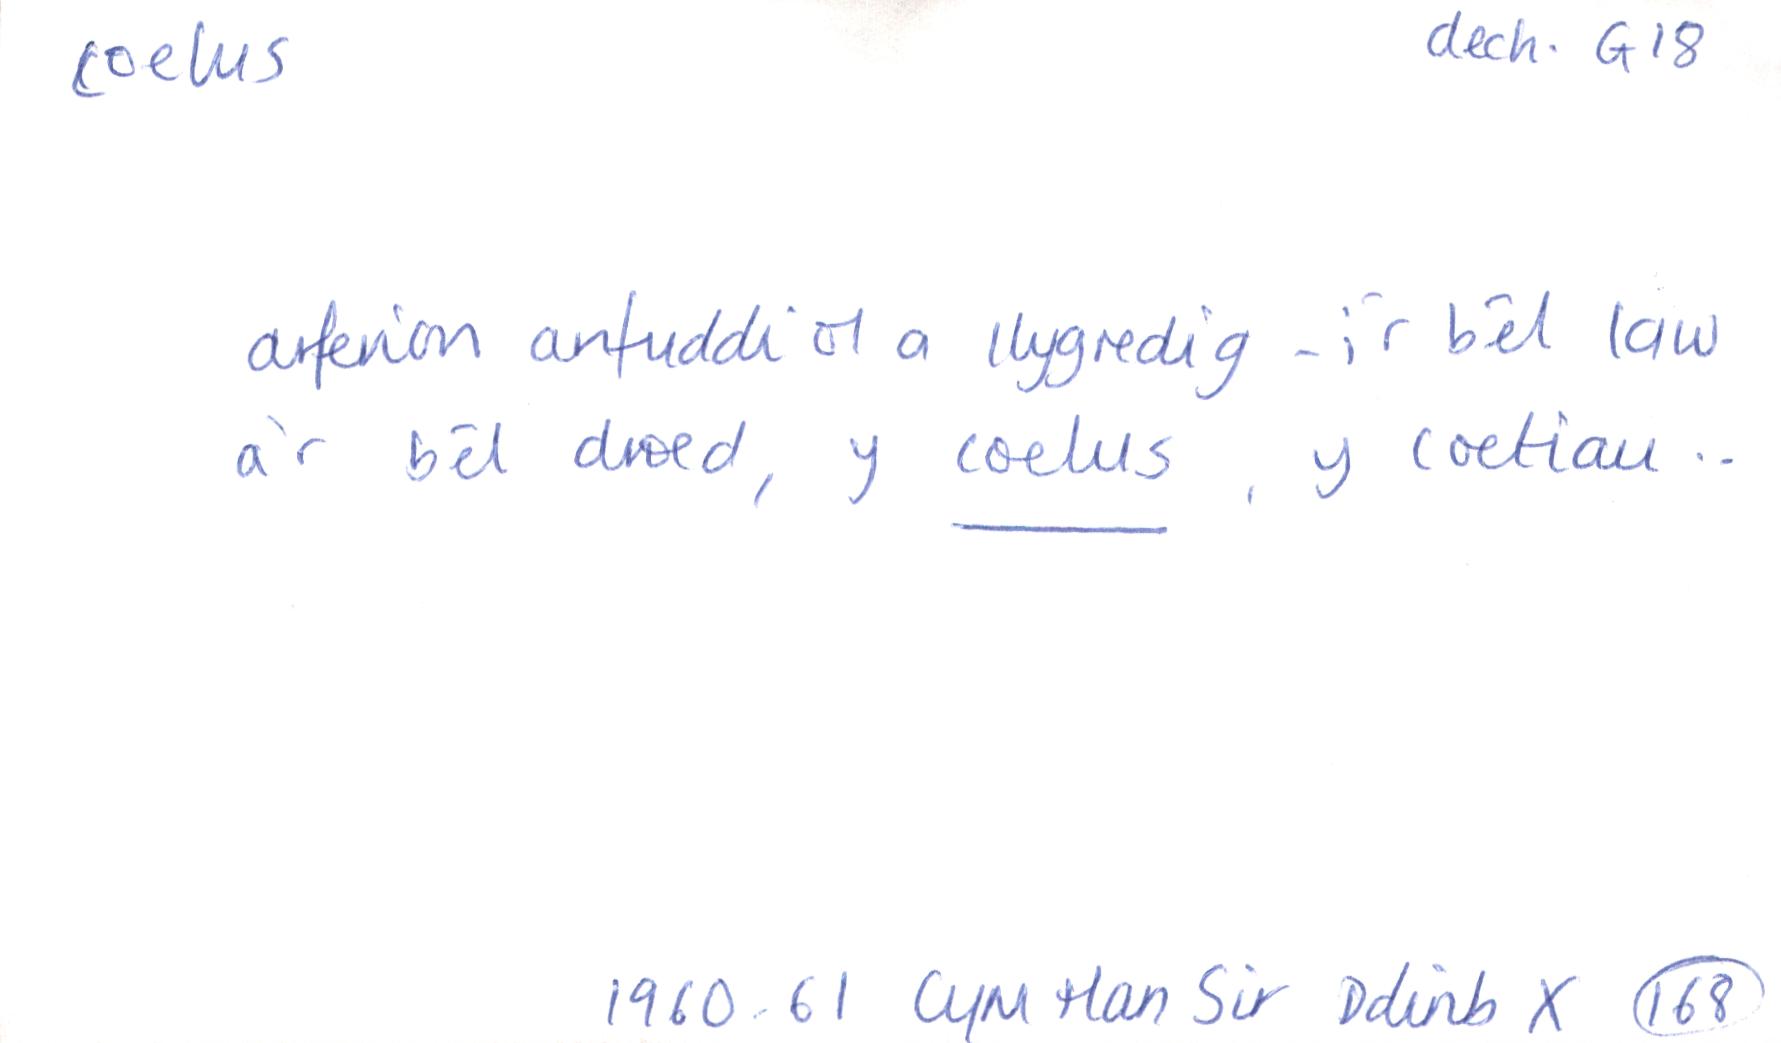 coelus dech. G18
arferion anfuddiol a llygredig - i'r bêl law
a'r bêl droed, y coelus, y coetiau ..
1960-61 Cym Han Sir Ddinb X 168